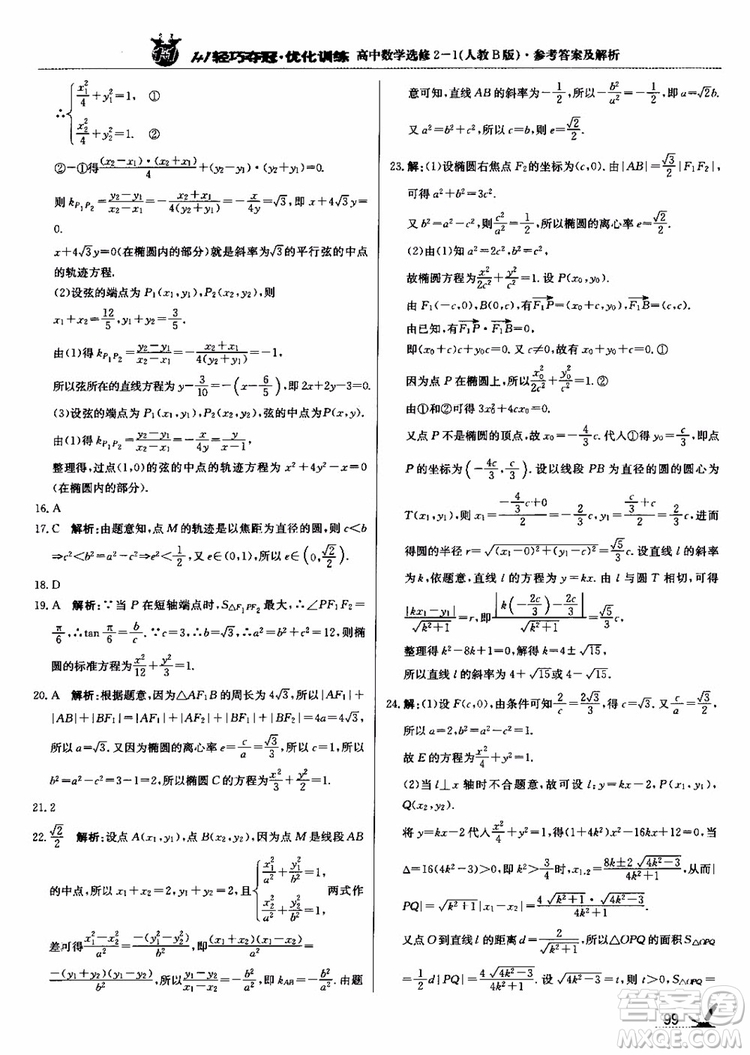 1+1轻巧夺冠·优化训练 高中数学选修2-1(人教B版)·参考答案及解析
∴{x₁²/4+y₁²=1, ①
x₂²/4+y₂²=1. ②
②-①得(x₂-x₁)·(x₂+x₁)/4=-(y₂-y₁)·(y₂+y₁),
则k_{P₁P₂}=(y₂-y₁)/(x₂-x₁)=-(x₂+x₁)/4(y₂+y₁)=√3,即x+4√3y=
0.
x+4√3y=0(在椭圆内的部分)就是斜率为√3的平行弦的中点
的轨迹方程.
(2)设弦的端点为P₁(x₁,y₁),P₂(x₂,y₂),则
x₁+x₂=12/5,y₁+y₂=3/5,
由(1)得k_{P₁P₂}=(y₂-y₁)/(x₂-x₁)=-(x₂+x₁)/4(y₂+y₁)=-1,
所以弦所在的直线方程为y-3/10=-(x-6/5),即2x+2y-3=0.
(3)设弦的端点为P₁(x₁,y₁),P₂(x₂,y₂),弦的中点为P(x,y).
由(1)得k_{P₁P₂}=(y₂-y₁)/(x₂-x₁)=-(x₂+x₁)/4(y₂+y₁)=-x/4y=y/(x-1),
整理得,过点(1,0)的弦的中点的轨迹方程为x²+4y²-x=0
(在椭圆内的部分).
16. A
17. C 解析:由题意知,点M的轨迹是以焦距为直径的圆,则c<b
⇒c²<b²=a²-c²⇒e²<1/2,又e>0,所以e∈(0,√2/2).
18. D
19. A 解析:∵当P在短轴端点时,S△F₁PF₂最大,∴∠PF₁F₂=
π/6,∴tan π/6=b/c=√3/3.又∵2c=2√3,∴c=√3,b=1,则椭
圆的标准方程为x²/4+y²/1=1.
20. A 解析:根据题意,因为△AF₁B的周长为4√3,所以|AF₁|+
|AB|+|BF₁|=|AF₁|+|AF₂|+|BF₁|+|BF₂|=4a=4√3,
所以a=√3.又因为椭圆的离心率e=c/a=√3/3,所以c=1,
b²=a²-c²=3-1=2,所以椭圆C的方程为x²/3+y²/2=1.
21. 2
22. √2/2 解析:设点A(x₁,y₁),点B(x₂,y₂),点M是线段AB
的中点,所以x₁+x₂=2,y₁+y₂=2,且{x₁²/a²+y₁²/b²=1,
x₂²/a²+y₂²/b²=1, 两式作
差可得(x₁²-x₂²)/a²=-(y₁²-y₂²)/b²,即(x₁+x₂)(x₁-x₂)/a²=
-(y₁+y₂)(y₁-y₂)/b²,所以(y₁-y₂)/(x₁-x₂)=-b²/a²,即k_{AB}=-b²/a².由题
意可知,直线AB的斜率为-1/2,所以-b²/a²=-1/2,即a=√2b.
又a²=b²+c²,所以c=b,则e=√2/2.
23. 解:(1)设椭圆右焦点F₂的坐标为(c,0).由|AB|=√3/2|F₁F₂|,
可得a²+b²=3c².
又b²=a²-c²,则c²/a²=1/2,所以椭圆的离心率e=√2/2.
(2)由(1)知a²=2c²,b²=c².
故椭圆方程为x²/2c²+y²/c²=1.设P(x₀,y₀).
由F₁(-c,0),B(0,c),有F₁P=(x₀+c,y₀),F₁B=(c,c).
由已知,有F₁P·F₁B=0,
即(x₀+c)c+y₀c=0.又c≠0,故有x₀+y₀+c=0.①
因为点P在椭圆上,所以x₀²/2c²+y₀²/c²=1.②
由①和②可得3x₀²+4cx₀=0.
又点P不是椭圆的顶点,故x₀=-4/3c.代入①得y₀=c/3,即点
P的坐标为(-4c/3,c/3).设以线段PB为直径的圆的圆心为
T(x₁,y₁),则x₁=(-4/3c+0)/2=-2/3c,y₁=(c/3+c)/2=2/3c,
得圆的半径r=√((x₁-0)²+(y₁-c)²)=√5/3c.设直线l的斜率
为k,依题意,直线l的方程为y=kx.由l与圆T相切,可得
|kx₁-y₁|/√(k²+1)=r,即|k(-2c/3)-2c/3|/√(k²+1)=√5/3c,
整理得k²-8k+1=0,解得k=4±√15,
所以直线l的斜率为4+√15或4-√15.
24. 解:(1)设F(c,0),由条件可知2/c=2√3/3,得c=√3.又c/a=√3/2,
所以a=2,b²=a²-c²=1.
故E的方程为x²/4+y²=1.
(2)当l⊥x轴时不合题意,故可设l:y=kx-2,P(x₁,y₁),
Q(x₂,y₂).
将y=kx-2代入x²/4+y²=1中得(1+4k²)x²-16kx+12=0,当
Δ=16(4k²-3)>0时,即k²>3/4时,x₁,₂=(8k±2√(4k²-3))/(4k²+1),
|PQ|=√(k²+1)|x₁-x₂|=4√(k²+1)·√(4k²-3)/(4k²+1).
又点O到直线l的距离d=2/√(k²+1),所以△OPQ的面积S△OPQ
=1/2d|PQ|=4√(4k²-3)/(4k²+1).设√(4k²-3)=t,则t>0,S△OPQ=
99